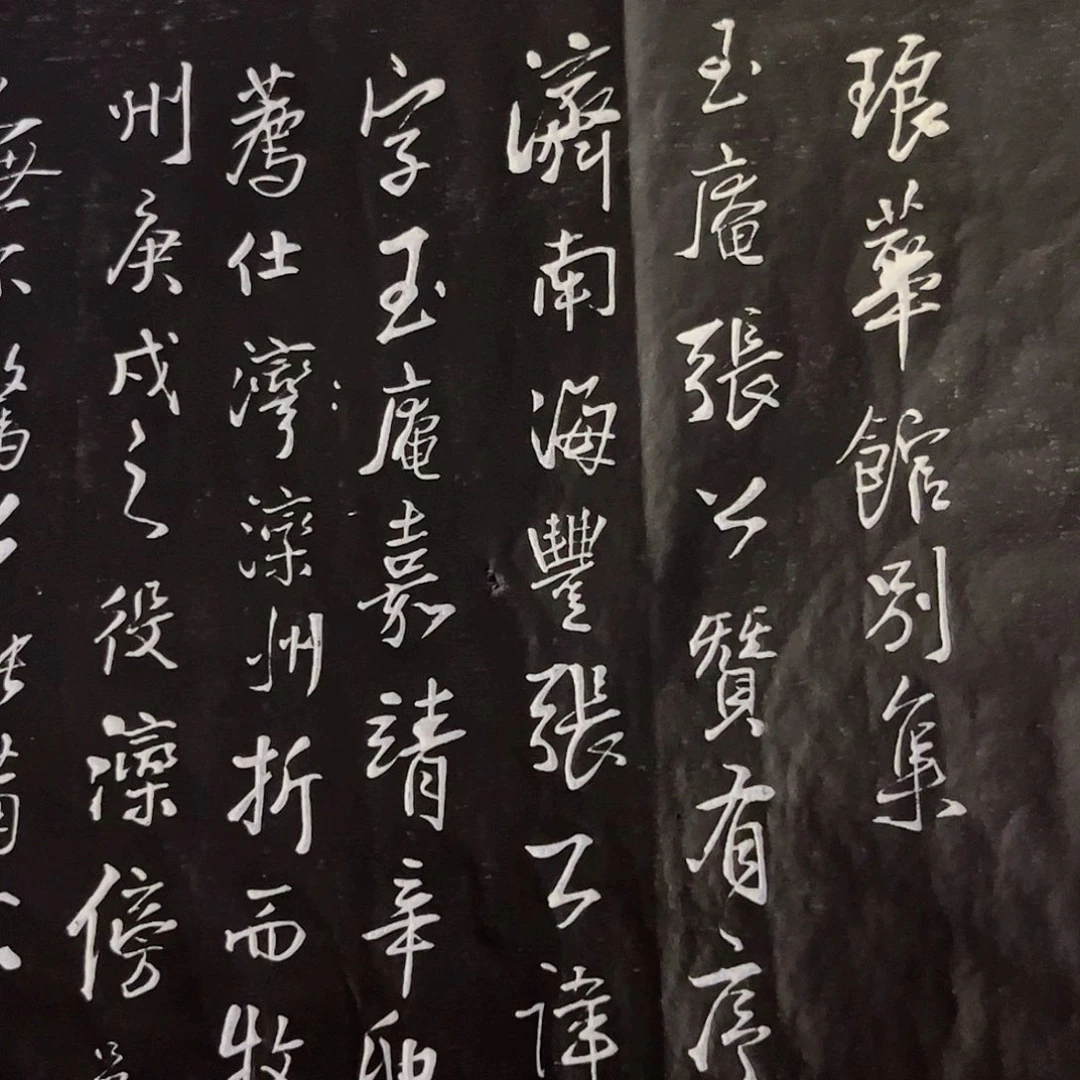 琅華館別集
玉庵張公贊有序
濟南海豐張公諱
字玉庵嘉靖辛卯
薦仕灣灤州折而牧
州庚戌之役灤傍